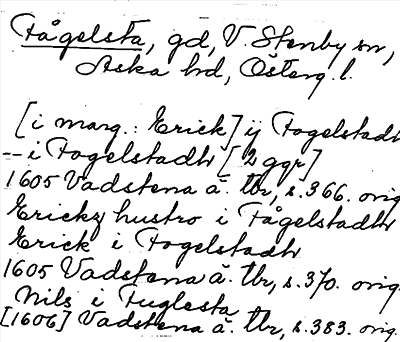 Fågelsta, gd, V. Stenby sn,
Aska hd, Österg. l.
[i marg.: Erick] ij Fogelstadh
-- i Fogelstadh [2 ggr]
1605 Vadstena ä. tbr, s. 366. orig.
Erickz hustro i Fågelstadh
Erick i Fogelstadh
1605 Vadstena ä. tbr, s. 370. orig.
Nils i Fuglesta
[1606] Vadstena ä. tbr, s. 383. orig.